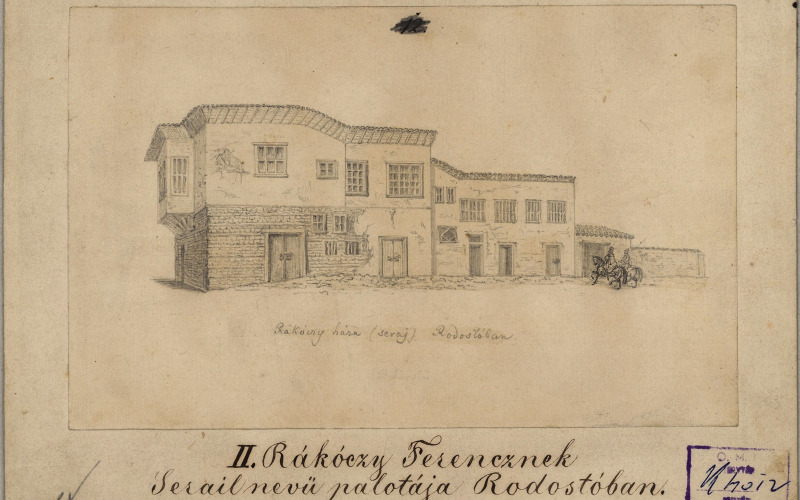 Rákóczy háza (seraj) Rodostóban
II. Rákóczy Ferencznek
Serailnevü palotája Rodostóban.
O. M.